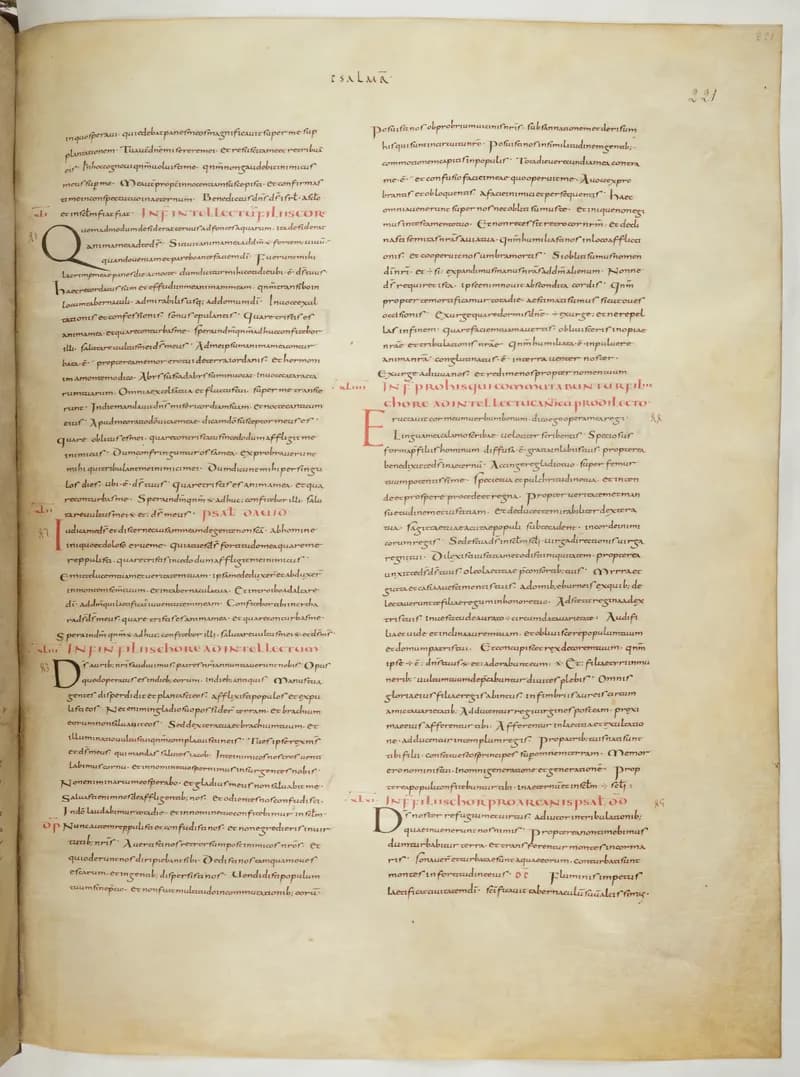 PSALMI
221
in quo speraui · qui edebat panes meos magnificauit super me sup
plantationem · Tu autem dne miserere mei · Et resuscita me et retribuā
eis · In hoc cognoui qnm uoluisti me · qnm non gaudebit inimicus
meus sup me · Me aut propt innocentiam suscepisti · Et confirmasti
me in conspectu tuo in aeternum · Benedictus dns ds isrl · a sclo
et in sclm fiat fiat · IN F INTELLECTU FILIIS CORE
Quemadmodum desiderat cervus ad fontes aquarum · ita desiderat
anima mea ad te ds · Sitiuit anima mea ad dm · fortem uiuum
quando ueniam et parebo ante faciem di · Fuerunt mihi
lacrimae meae panes die ac nocte · dum dicitur mihi cotidie ubi · ē · ds tuus
haec recordatus sum et effudi in me animam meam · qnm transibo in
locum tabernaculi · admirabilis usq; ad domum di · In uoce exul
tationis et confessionis · sonus epulantis · Quare tristis es
anima mea · et quare conturbas me · spera in dm qnm adhuc confitebor
illi · salutare uultus mei ds meus · Ad me ipsum anima mea contur
bata · ē · propterea memor ero tui de terra iordanis · Et hermoni
im a monte modico · Abyssus ad abyssum inuocat · In uoce cataracta
rum tuarum · Omnia excelsa tua et fluctus tui · super me transie
runt · In die mandauit dns misericordiam suam · et nocte canticum
eius · Apud me oratio do uitae meae · dicam do susceptor meus es ·
quare oblitus es mei · quare contristatus incedo dum affligit me
inimicus · Dum confringuntur ossa mea · exprobrauerunt
mihi qui tribulant me inimici mei · Dum dicunt mihi per singu
los dies · ubi · ē · ds tuus · Quare tristis es anima mea · Et qua
re conturbas me · Spera in dm qnm adhuc confitebor illi · salu
tare uultus mei et ds meus · PSAL DAUID
Iudica me ds et discerne causam meam de gente non sca · ab homine
iniquo et doloso erue me · Quia tu es ds fortitudo mea quare me
reppulisti · quare tristis incedo dum affligit me inimicus ·
Emitte lucem tuam et ueritatem tuam · ipsa me deduxer et adduxer
in montem scm tuum · et in tabernacula tua · Et introibo ad altare
di · ad dm qui laetificat iuuentutem meam · Confitebor tibi in citha
ra ds ds meus · quare tristis es anima mea · et quare conturbas me ·
Spera in dm qnm adhuc confitebor illi · salutare uultus mei et ds meus
IN F IN FILIIS CHORE AD INTELLECTUM
Ds auribus nris audiuimus patres nri annuntiauerunt nobis · Opus
quod operatus es in dieb; eorum · in dieb; antiquis · Manus tua
gentes disperdidit et plantasti eos · afflixisti populos et expu
listi eos · Nec enim in gladio suo possider terram · et brachium
eorum non saluauit eos · Sed dextera tua et brachium tuum · et
illuminatio uultus tui qnm complacuisti in eis · Tu es ipse rex ms
et ds meus · qui mandas salutes iacob · In te inimicos nros uenti
labimus cornu · et in nomine tuo spernimus insurgentes nobis ·
Non enim in arcu meo sperabo · et gladius meus non saluabit me ·
Saluasti enim nos de affligentib; nos · Et odientes nos confudisti ·
In do laudabimur tota die · et in nomine tuo confitebimur in sclm ·
DP Nunc autem reppulisti et confudisti nos · et non egredieris in uir
tutib; nris · Auertisti nos retrorsum post inimicos nros · Et
qui oderunt nos diripiebant sibi · Dedisti nos tamquam oues
escarum · et in gentib; dispersisti nos · Uendidisti populum
tuum sine pretio · Et non fuit multitudo in commutationib; eorum
Posuisti nos obprobrium uicinis nris · subsannationem et derisum
his qui sunt in circuitu nro · Posuisti nos in similitudinem gentib; ·
commotionem capitis in populis · Tota die uerecundia mea contra
me · ē · et confusio faciei meae quo operuit me · A uoce expro
brantis et obloquentis · a facie inimici et persequentis · Haec
omnia uenerunt super nos nec obliti sumus te · Et inique non egi
mus in testamento tuo · Et non recessit retro cor nrm · Et decli
nasti semitas nras a uia tua · Qnm humiliasti nos in loco afflicti
onis · Et cooperuit nos umbra mortis · Si obliti sumus nomen
di nri · et si expandimus manus nras ad dm alienum · Nonne
ds requiret ista · ipse enim nouit abscondita cordis · Qnm
propter te mortificamur tota die · aestimati sumus sicut oues
occisionis · Exurge quare dormis dne · exurge · et ne repel
las in finem · quare faciem tuam auertis · obliuisceris inopiae
nrae et tribulationis nrae · Qnm humiliata · ē · in puluere
anima nra · conglutinatus · ē · in terra uenter noster ·
Exurge adiuua nos · et redime nos propter nomen tuum
IN F PRO HIS QUI COMMUTABUNTUR FILIIS
CHORE AD INTELLECTU CANTICU PRO DILECTO
Eructauit cor meum uerbum bonum · dico ego opera mea regi ·
Lingua mea calamus scribae · uelociter scribentis · Speciosus
forma p̄ filiis hominum · diffusa · ē · gratia in labiis tuis · propterea
benedixit te ds in aeternū · Accingere gladio tuo · super femur
tuum potentissime · Specie tua et pulchritudine tua · et inten
de et prospere procede et regna · Propter ueritatem et man
suetudinem et iustitiam · Et deducet te mirabiliter dextera
tua · Sagittae tuae acutae populi sub te cadent · in corde inimi
corum regis · Sedes tua ds in sclm scli · uirga directionis uirga
regni tui · Dilexisti iustitiam et odisti iniquitatem · propterea
unxit te ds ds tuus oleo laetitiae p̄ consortib; tuis · Myrra et
gutta et casia a uestimentis tuis · a domib; eburneis ex quib; de
lectauerunt te filiae regum in honore tuo · Adstetit regina a dex
tris tuis · in uestitu deaurato circumdata uarietate · Audi fi
lia et uide et inclina aurem tuam · et obliuiscere populum tuum
et domum patris tui · Et concupiscet rex decorem tuum · qnm
ipse · ē · dns tuus et adorabunt eum · Et filiae tyri in mu
nerib; uultum tuum depcabuntur diuites plebis · Omnis
gloria eius filiae regis ab intus · in fimbriis aureis circum
amicta uarietatib; · Adducentur regi uirgines post eam · proxi
mae eius afferentur tibi · Afferentur in laetitia et exultatio
ne · adducentur in templum regis · Pro patrib; tuis nati sunt
tibi filii · constitues eos principes sup omnem terram · Memor
ero nominis tui · In omni generatione et generatione · Prop
terea populi confitebuntur tibi · in aeternū et in sclm scli ·
IN F FILIIS CHOR PRO ARCANIS PSAL DD
Ds noster refugium et uirtus · adiutor in tribulationib;
quae inuenerunt nos nimis · Propterea non timebimus
dum turbabitur terra · et transferentur montes in cor ma
ris · Sonauer et turbatae sunt aquae eorum · conturbati sunt
montes in fortitudine eius · DS Fluminis impetus
laetificat ciuitatem di · scificauit tabernaculū suū altissimus ·